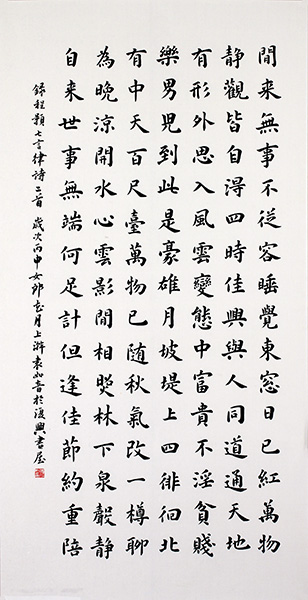 間来無事不從容睡覺東窓日已紅萬物
靜觀皆自得四時佳興與人同道通天地
有形外思入風雲變態中富貴不淫貧賤
樂男兒到此是豪雄月坡堤上四徘徊北
有中天百尺臺萬物已随秋氣改一樽聊
為晚凉開水心雲影間相照林下泉聲靜
自来世事無端何足計但逢佳節約重陪
錄程顥七言律詩二首 歲次丙申女郎花月上澣袁如音於復興書屋